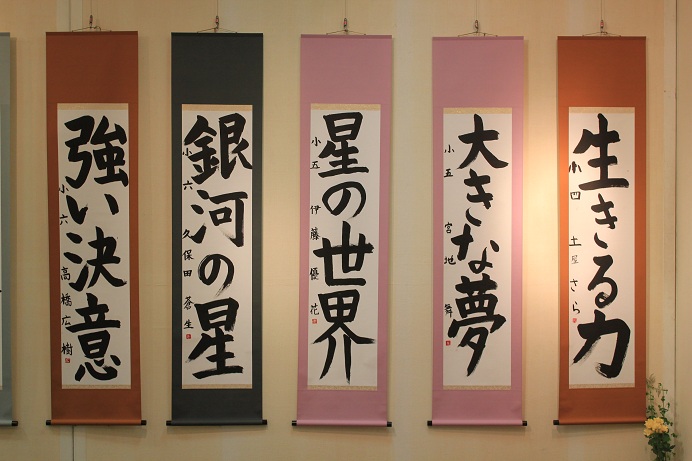 生きる力
小四 土屋さら
大きな夢
小五 宮地舞
星の世界
小五 伊藤優花
銀河の星
小六 久保田蒼生
強い決意
小六 高橋広樹